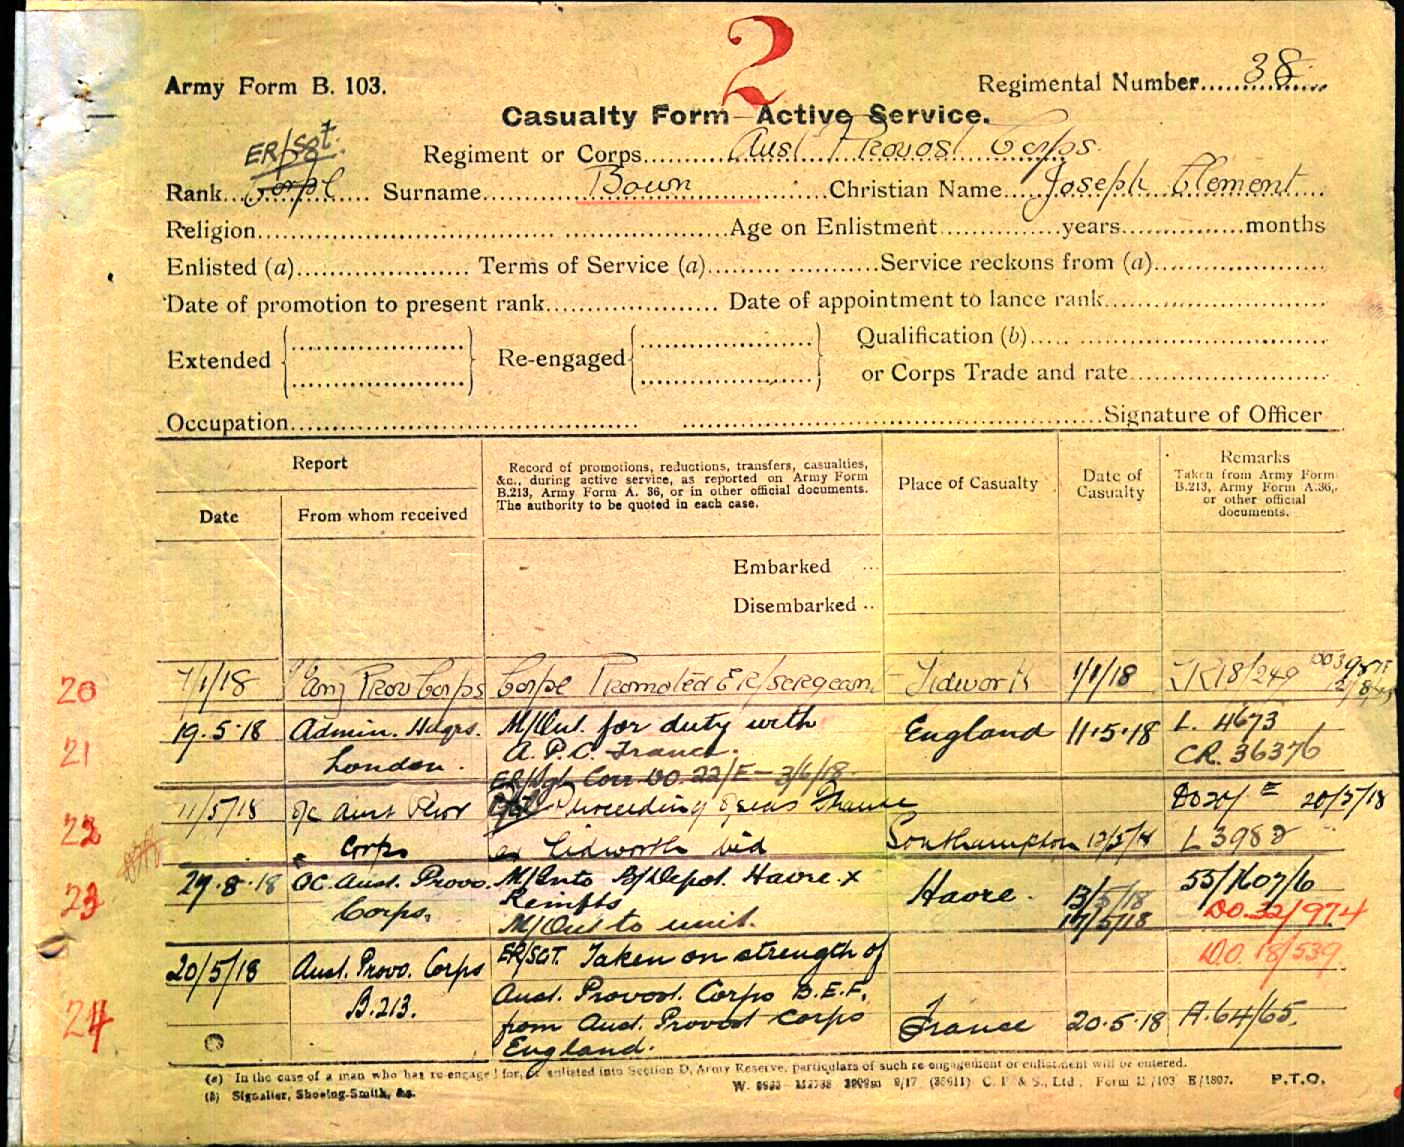 2
Army Form B. 103.
Regimental Number 38
Casualty Form—Active Service.
ER/Sgt.
Regiment or Corps Aust Provost Corps
Rank Corpl Surname Bown Christian Name Joseph Clement
Religion Age on Enlistment years months
Enlisted (a) Terms of Service (a) Service reckons from (a)
Date of promotion to present rank Date of appointment to lance rank
Extended Re-engaged Qualification (b)
or Corps Trade and rate
Occupation Signature of Officer
Report
Date
From whom received
Record of promotions, reductions, transfers, casualties,
&c., during active service, as reported on Army Form
B.213, Army Form A. 36, or in other official documents.
The authority to be quoted in each case.
Place of Casualty
Date of
Casualty
Remarks
Taken from Army Form
B.213, Army Form A.36,
or other official
documents.
Embarked
Disembarked
20 7/1/18 Prov Corps Corpl Promoted ER/Sergeant Tidworth 1/1/18 18/249
21 19.5.18 Admin. Hdqrs. London. M/Out for duty with England 11.5.18 L. 4673
A.P.C. France. CR. 36376
ER/Sgt Corr DO. 22/E — 3/6/18
22 11/5/18 Aust Prov Corps Proceeding O'seas France 20/5/18
ex Tidworth via Southampton 12/5/18 L 3982
23 29.8.18 OC. Aust. Provo. Corps. M/Into B/Depot. Havre x Havre. 13/5/18 55/1607/6
Reinfts DO.32/974
M/Out to unit. 17/5/18
24 20/5/18 Aust. Provo. Corps B.213. ER/SGT. Taken on strength of D.O. 18/539
Aust. Provost. Corps B.E.F.
from Aust. Provost Corps France 20.5.18 A.64/65.
England.
(a) In the case of a man who has re-engaged for, or enlisted into Section D, Army Reserve, particulars of such re-engagement or enlistment will be entered.
(b) Signaller, Shoeing-Smith, &c.
9/17 C. P & S., Ltd. Form B/103 E/1807. P.T.O.